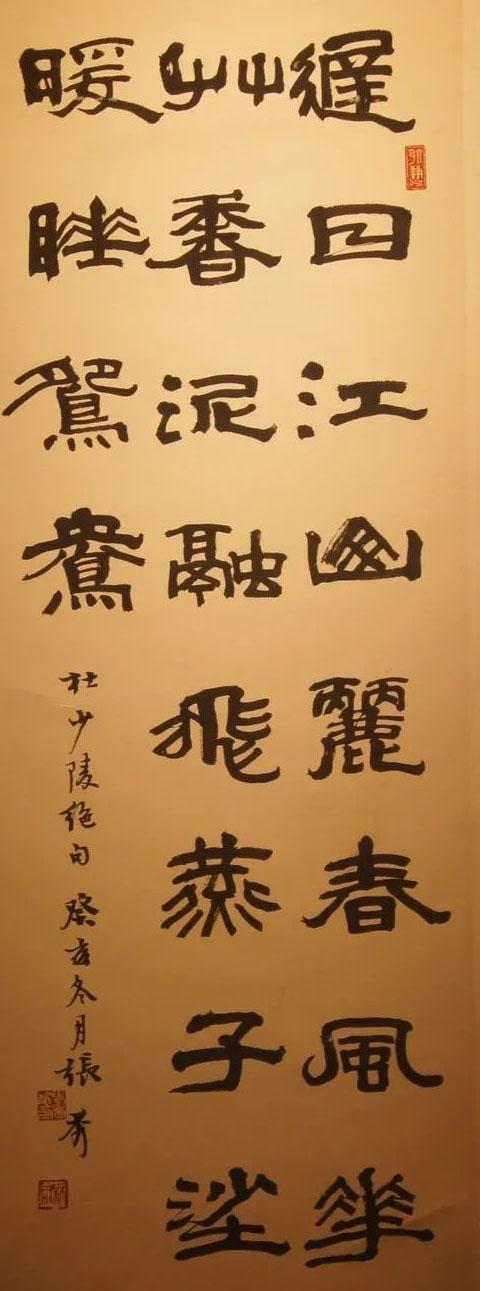 遲日江山麗春風華
艸香泥融飛燕子沙
暖睡鴛鴦
杜少陵絕句 癸亥冬月張